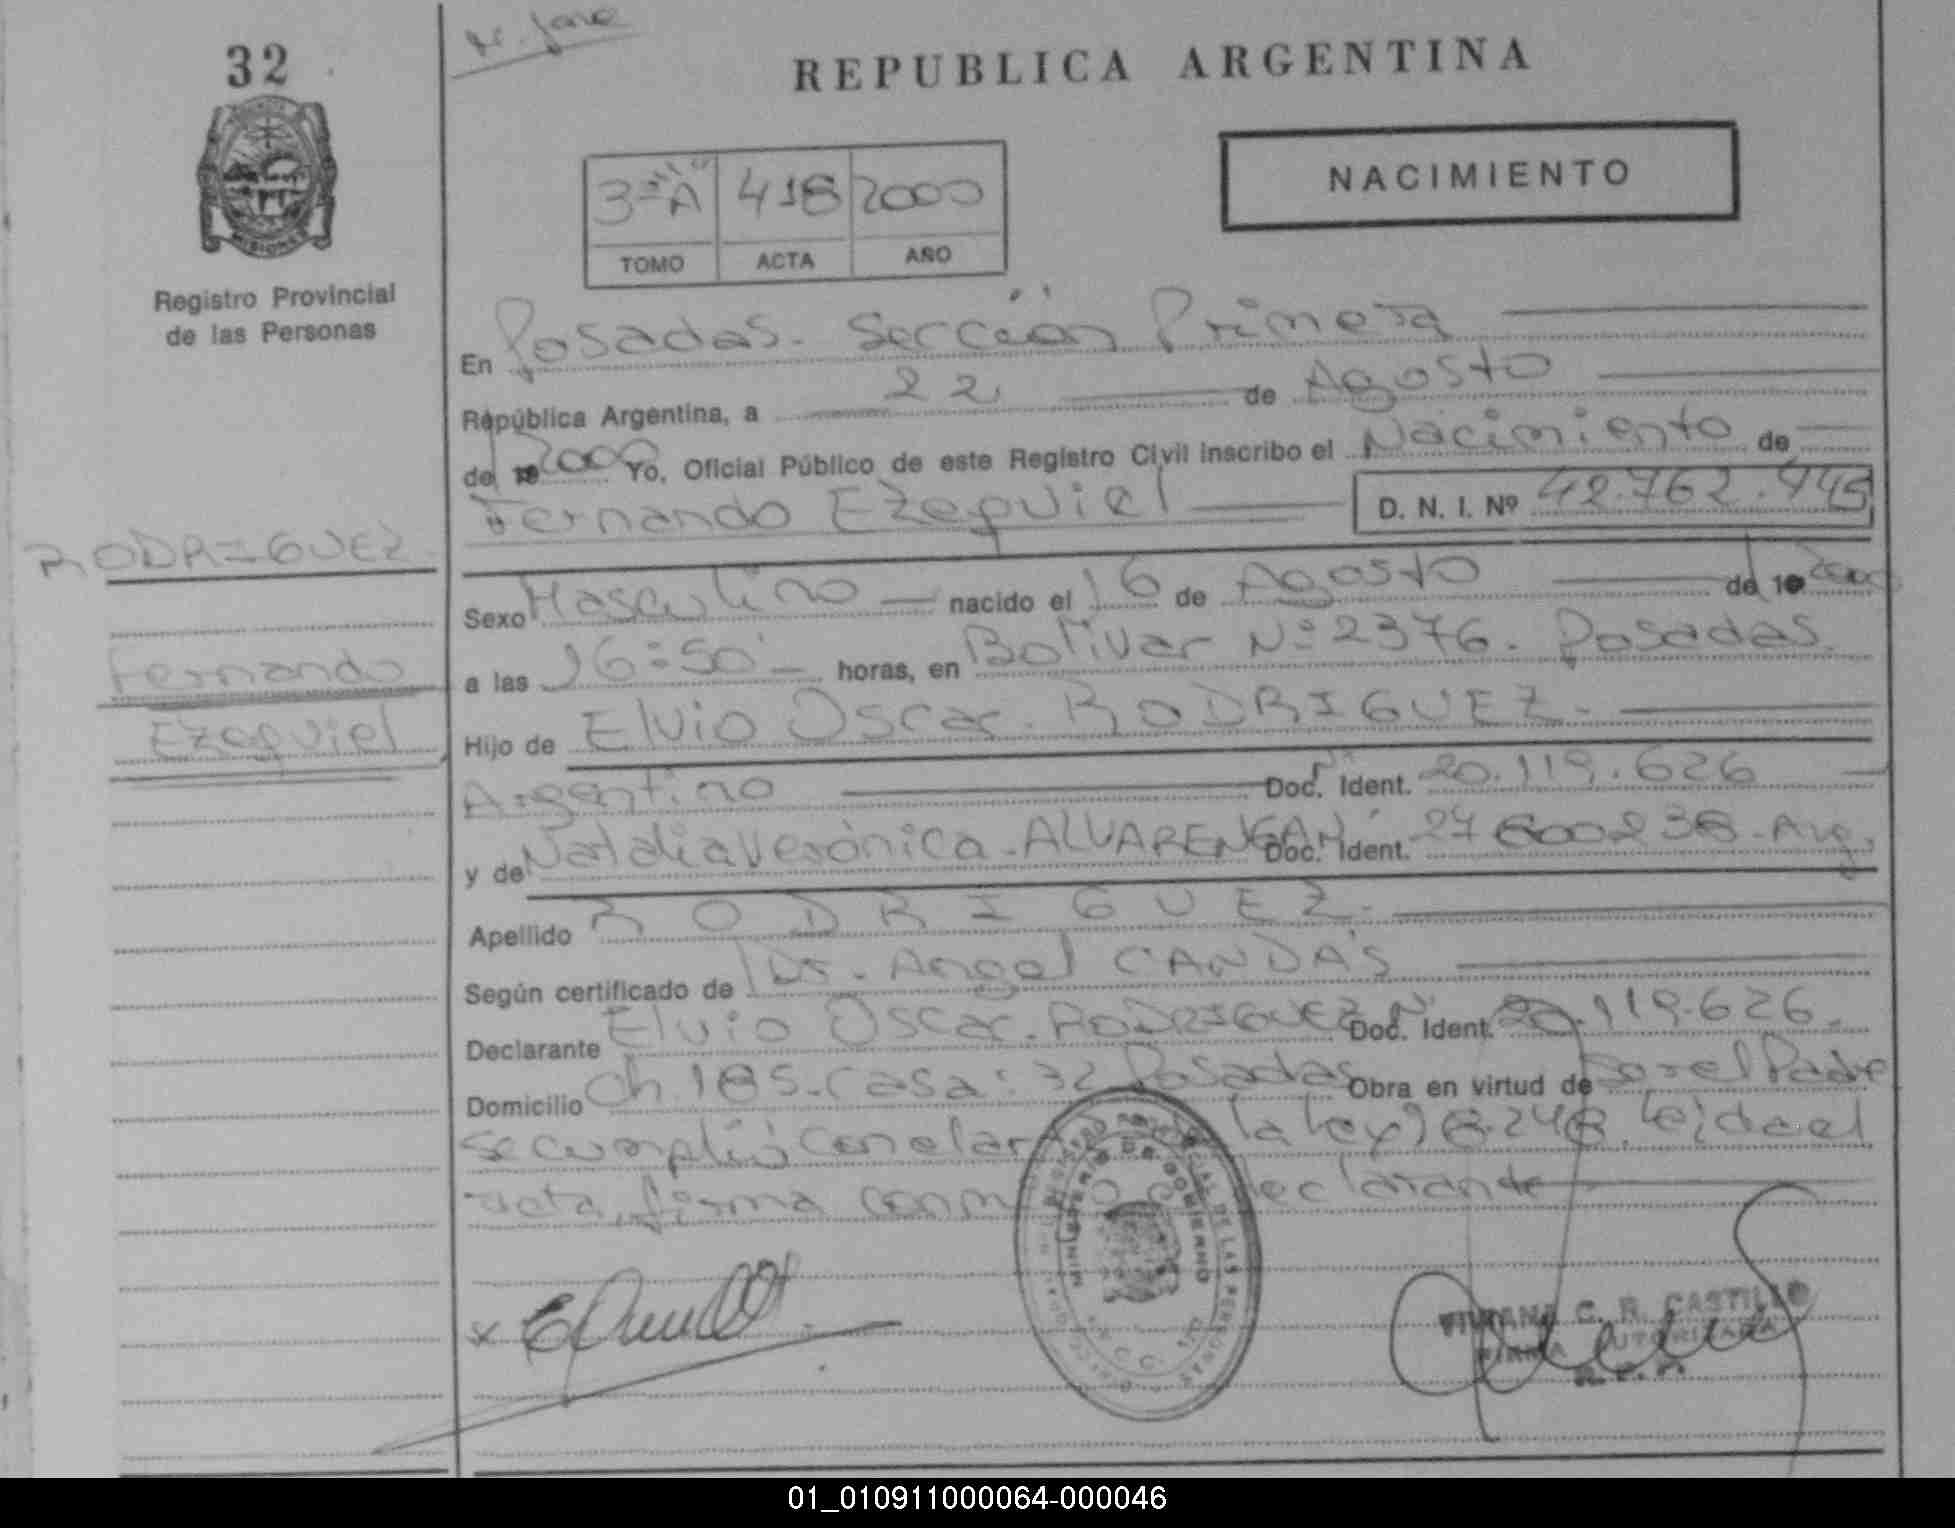 32
REPUBLICA ARGENTINA
MISIONES
Registro Provincial
de las Personas
3ª "A" 418 2000
TOMO ACTA AÑO
NACIMIENTO
En Posadas. Sección Primera
República Argentina, a 22 de Agosto
de 2000 Yo, Oficial Público de este Registro Civil inscribo el Nacimiento de
Fernando Ezequiel D. N. I. Nº 42.762.445
RODRIGUEZ
Fernando
Ezequiel
Sexo Masculino nacido el 16 de Agosto de 2000
a las 16:50 horas, en Bolivar Nº 2376. Posadas.
Hijo de Elvio Oscar. RODRIGUEZ.
Argentino Doc. Ident. 20.119.626
y de Natalia Verónica. ALVARENGA Doc. Ident. Arg.
Apellido RODRIGUEZ.
Según certificado de Dr. Angel CANDAS
Declarante Elvio Oscar. RODRIGUEZ Doc. Ident. 20.119.626.
Domicilio Ch. 185. Casa: 32 Posadas Obra en virtud de Ser el Padre
se cumplió con el la Ley 18.248. leida el
acta, firma declarante
MINISTERIO DE GOBIERNO
VIVIANA C. R. CASTILLO
FIRMA AUTORIZADA
01_010911000064-000046